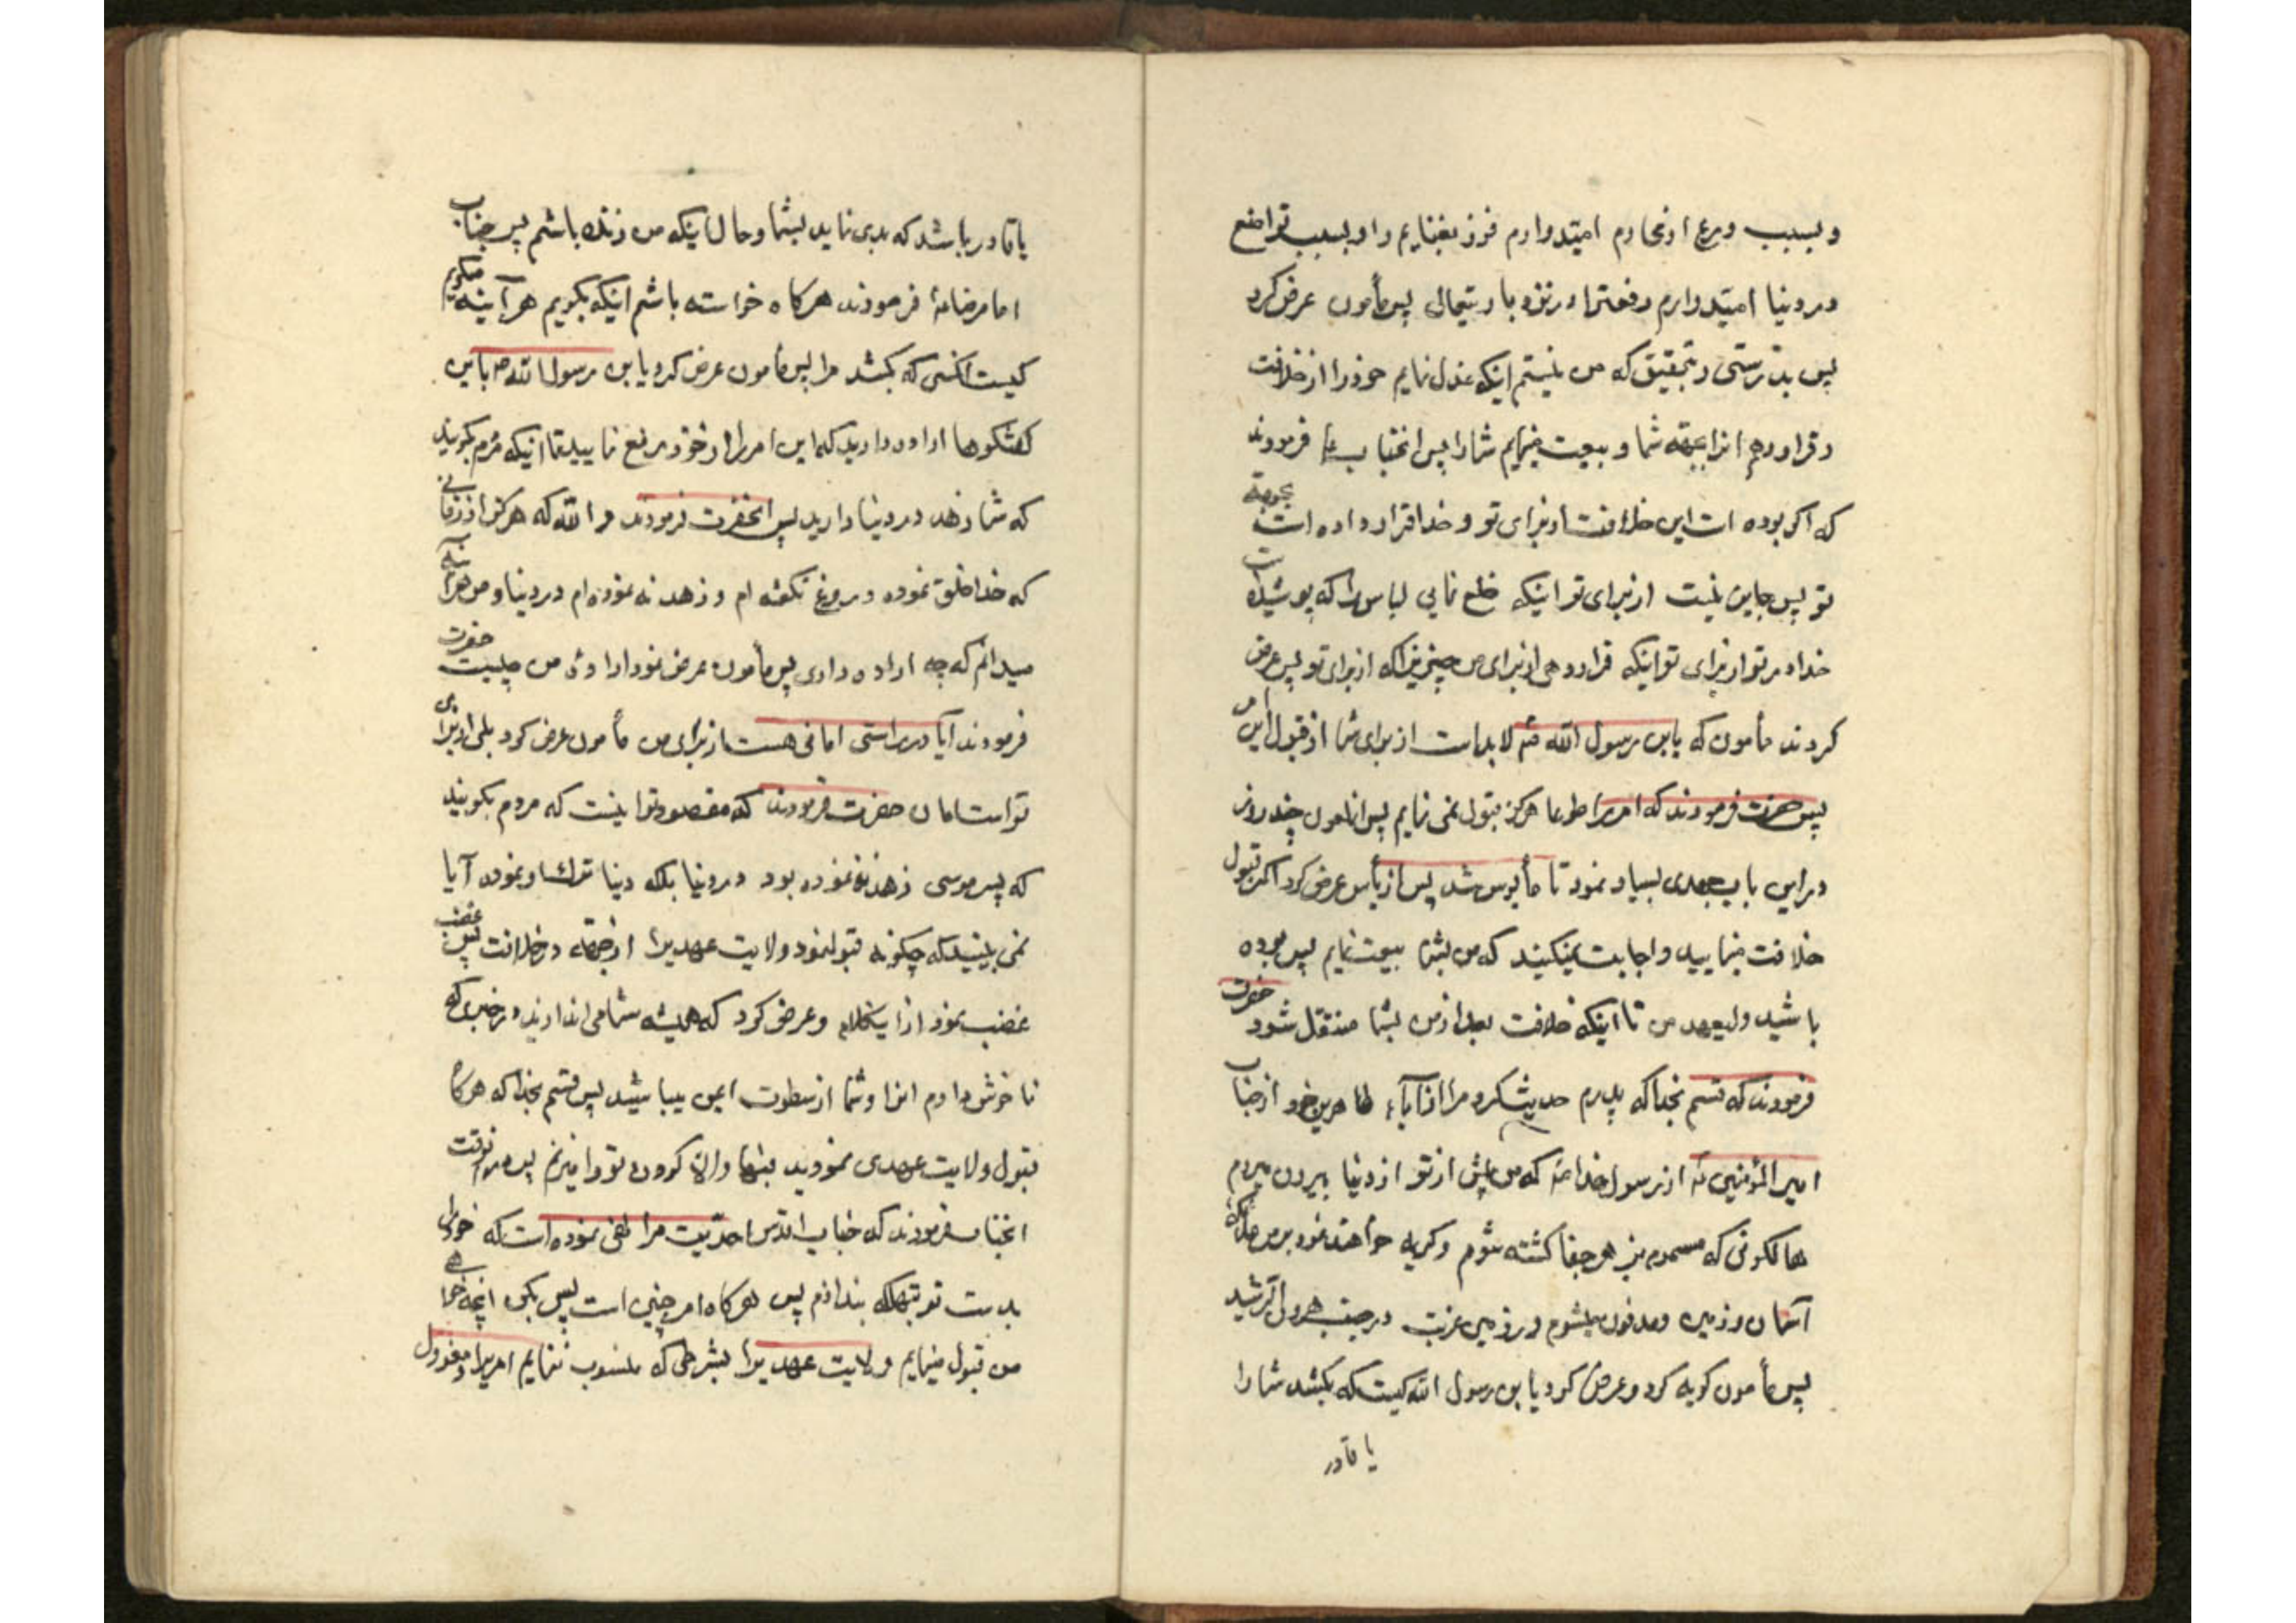 و بسبب ورع از محارم امیتدوارم فوز بغنایم را و بسبب تواضع
در دنیا امیتدوارم رفعترا در نزد باریتعالی پس مأمون عرض کرد
پس بدرستی و بتحقیق که من نیستم اینکه عزل نمایم خود را از خلافت
و قرار دهم انرا بجهة شما و بیعت نمایم شما را پس انجناب ع فرمودند
که اکر بوده است این خلافت از برای تو و خدا قرار داده است بجهة
تو پس جایز نیست از برای تو اینکه خلع نمایی لباسرا که پوشیده است
خدا مر تو از برای تو اینکه قرار دهی از برای من چیزیرا که از برای تو پس عرض
کردند مأمون که یابن رسول الله لابد است از برای شما از قبول این امر
پس حضرت فرمودند که امریرا طوعا هرکز قبول نمی نمایم پس انملعون چند روز
در این باب جهدی بسیار نمود تا مأیوس شد پس از یأس عرض کرد اکر قبول
خلافت نمیایید و اجابت نمیکنید که من بشما بیعت نمایم پس بوده
باشید ولیعهد من تا اینکه خلافت بعد از من بشما منتقل شود حضرت
فرمودند که قسم بخدا که پدرم حدیث کرد مرا از آباء طاهرین خود از جناب
امیر المؤمنین از رسول خدا که من پیش از تو از دنیا بیرون میروم
حالکونی که مسموم بزهر جفا کشته شوم و کریه خواهند نمود بر من ملائکه
آسمان و زمین و مدفون میشوم در زمین غربت در جنب هرون الرشید
پس مأمون کریه کرد و عرض کرد یابن رسول الله کیست که بکشد شما را
یا قادر
یا قادر باشد که بدی نماید بشما و حال اینکه من زنده باشم پس جناب
امام رضا فرمودند هرکاه خواسته باشم اینکه بکویم هرآینه میکویم
کیست انکسی که بکشد مرا پس مأمون عرض کرد یابن رسول الله باین
کفتکوها اراده دارید که این امر را از خود رفع نمایید تا اینکه مردم بکویند
که شما زهد در دنیا دارید پس انحضرت فرمودند والله که هرکز از زمانی
که خدا خلق نموده دروغ نکفته ام و زهد نه نموده ام در دنیا و من هرآینه
میدانم که چه اراده داری پس مأمون عرض نمود اراده من چیست حضرت
فرمودند آیا در راستی امانی هست از برای من مأمون عرض کرد بلی از برای
تو است امان حضرت فرمودند که مقصود تو اینست که مردم بکویند
که پسر موسی زهد نه نموده بود در دنیا بلکه دنیا ترک او نموده آیا
نمی بینید که چکونه قبول نمود ولایت عهدیرا از جهة در خلافت پس غضب
غضب نمود از اینکلام و عرض کرد که همیشه شما می اندازید در چیزی که
ناخوش دارم انرا و شما از سطوت ایمن میباشید پس قسم بخدا که هرکاه
قبول ولایت عهدی نمودید فبها والا کردن تو را میزنم پس در انوقت
انجناب فرمودند که جناب اقدس احدّیت مرا نهی نموده است که خود را
بدست تو بتهلکه بندازم پس هرکاه امر چنین است پس بکن انچه خواهی
من قبول مینمایم ولایت عهدیرا بشرطی که منسوب ننمایم امریرا و معزول